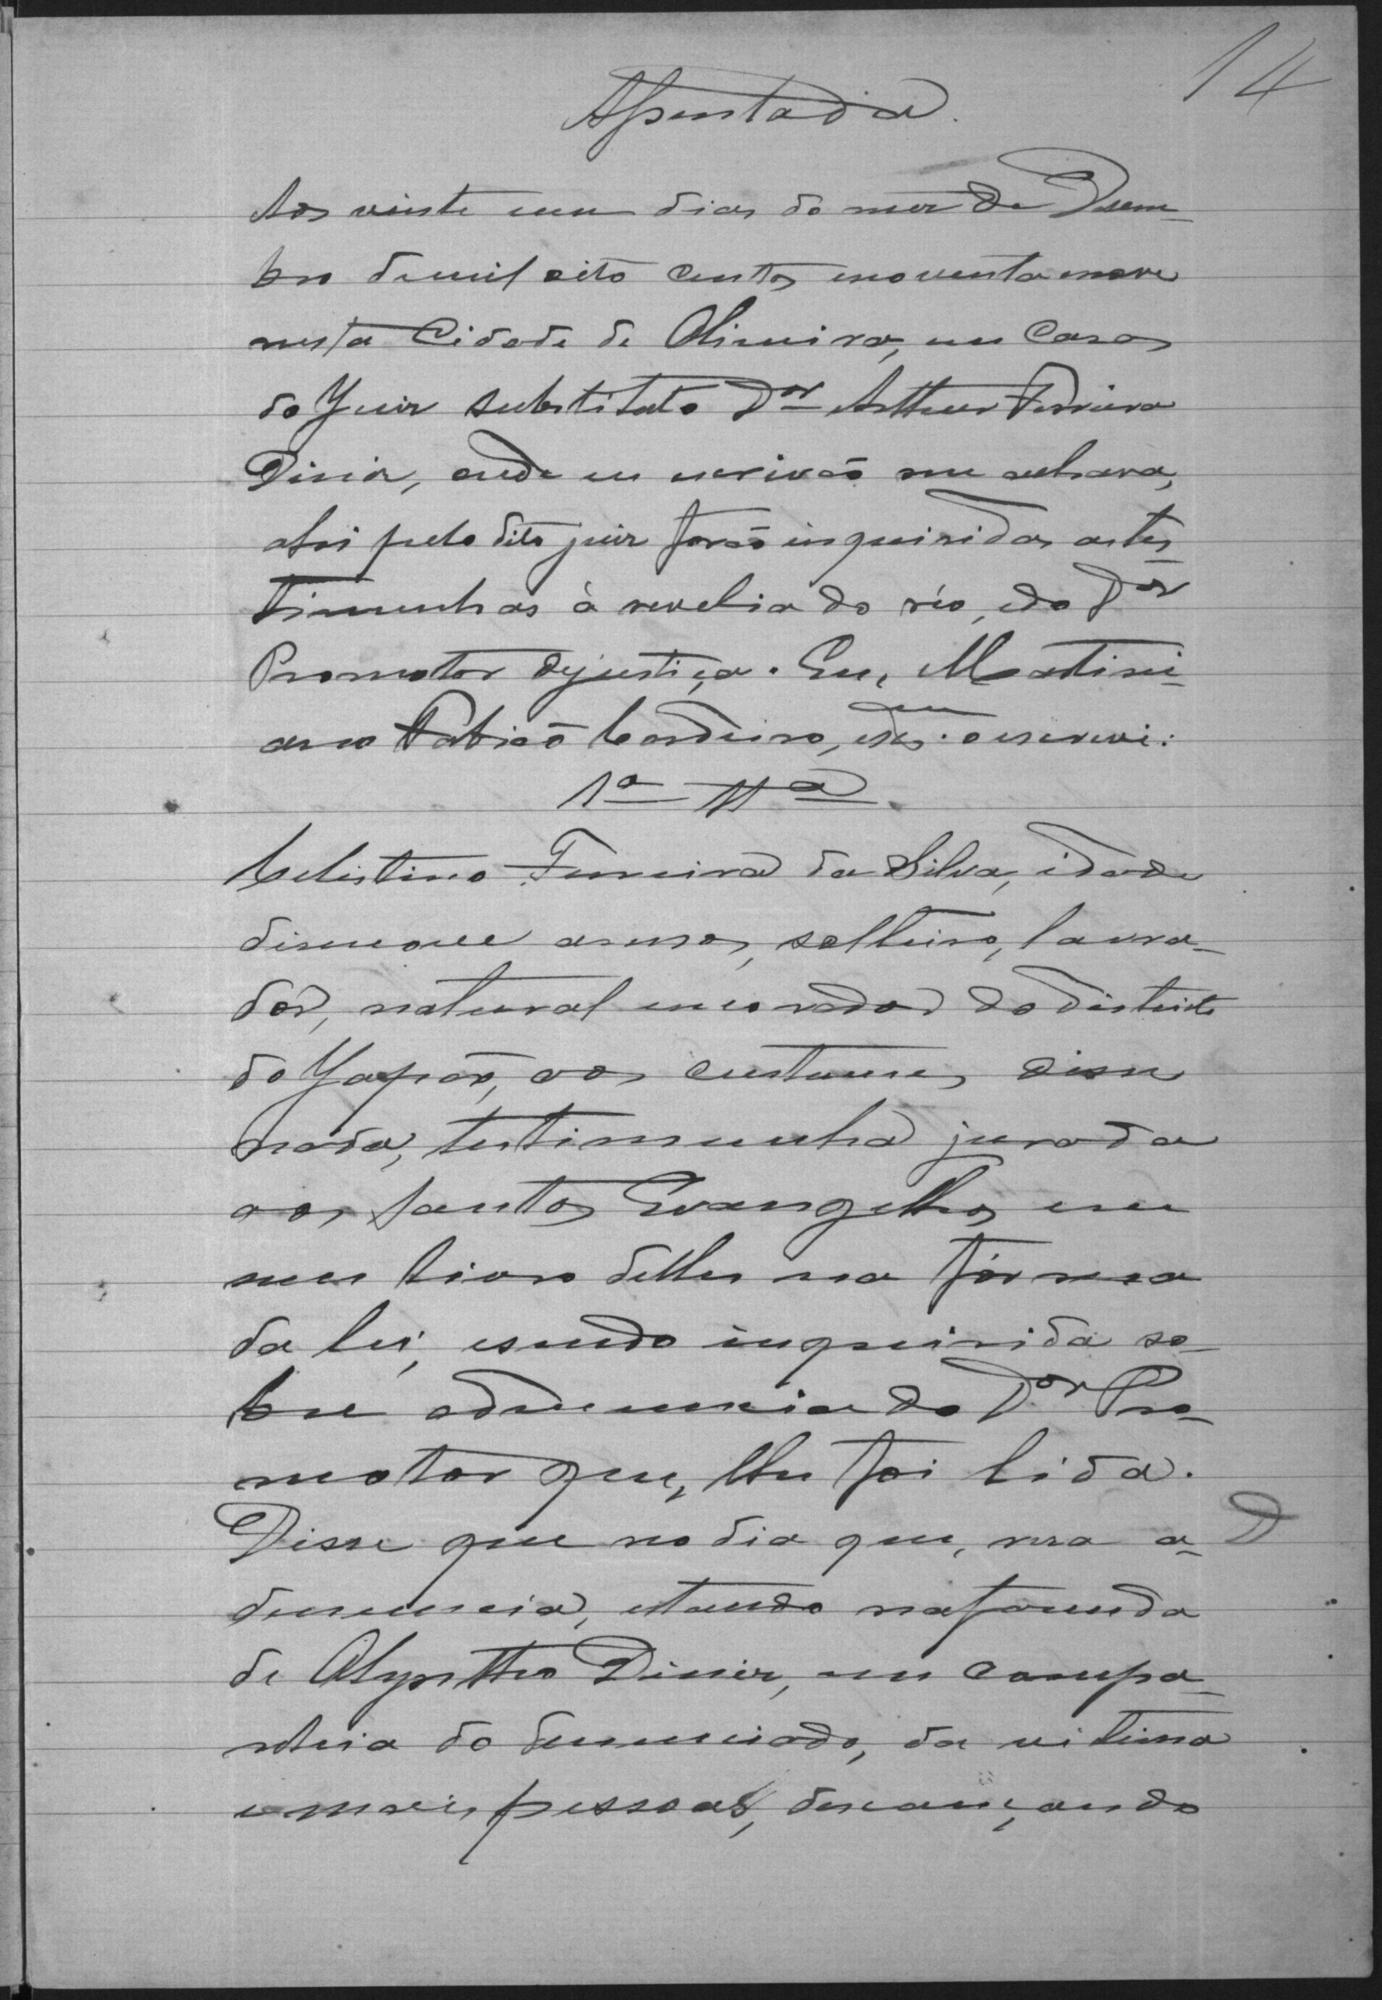 14
Assentada.
Aos vinte um dias do mez de Dezem-
bro de mil oito centos enoventa enove
nesta Cidade de Oliveira, em casa
do Juiz substituto Dor Arthur Ferreira
Diniz, onde eu escrivão me achava,
ahi pelo dito juiz forão inquiridas astes-
timunhas à revelia do réo, edo Dor
Promotor dejustiça. Eu, Martini-
ano Fabião Cordeiro, esc. o escrevi.
1a Ta
Celestino Ferreira da Silva, idade
disenove annos, solteiro, lavra-
dor, natural emorador do districto
do Japão, aos custumes disse
nada, testimunha jurada
aos Santos Evangelhos em
um livro delles na fórma
da lei, esendo inquirida so-
bre adenuncia do Dor Pro-
motor que, lhe foi lida.
Disse que no dia que, resa a- D
denuncia, estando nafazenda
de Olyntho Diniz, em compa-
nhia do denunciado, da victima
emais pessoas, descançando